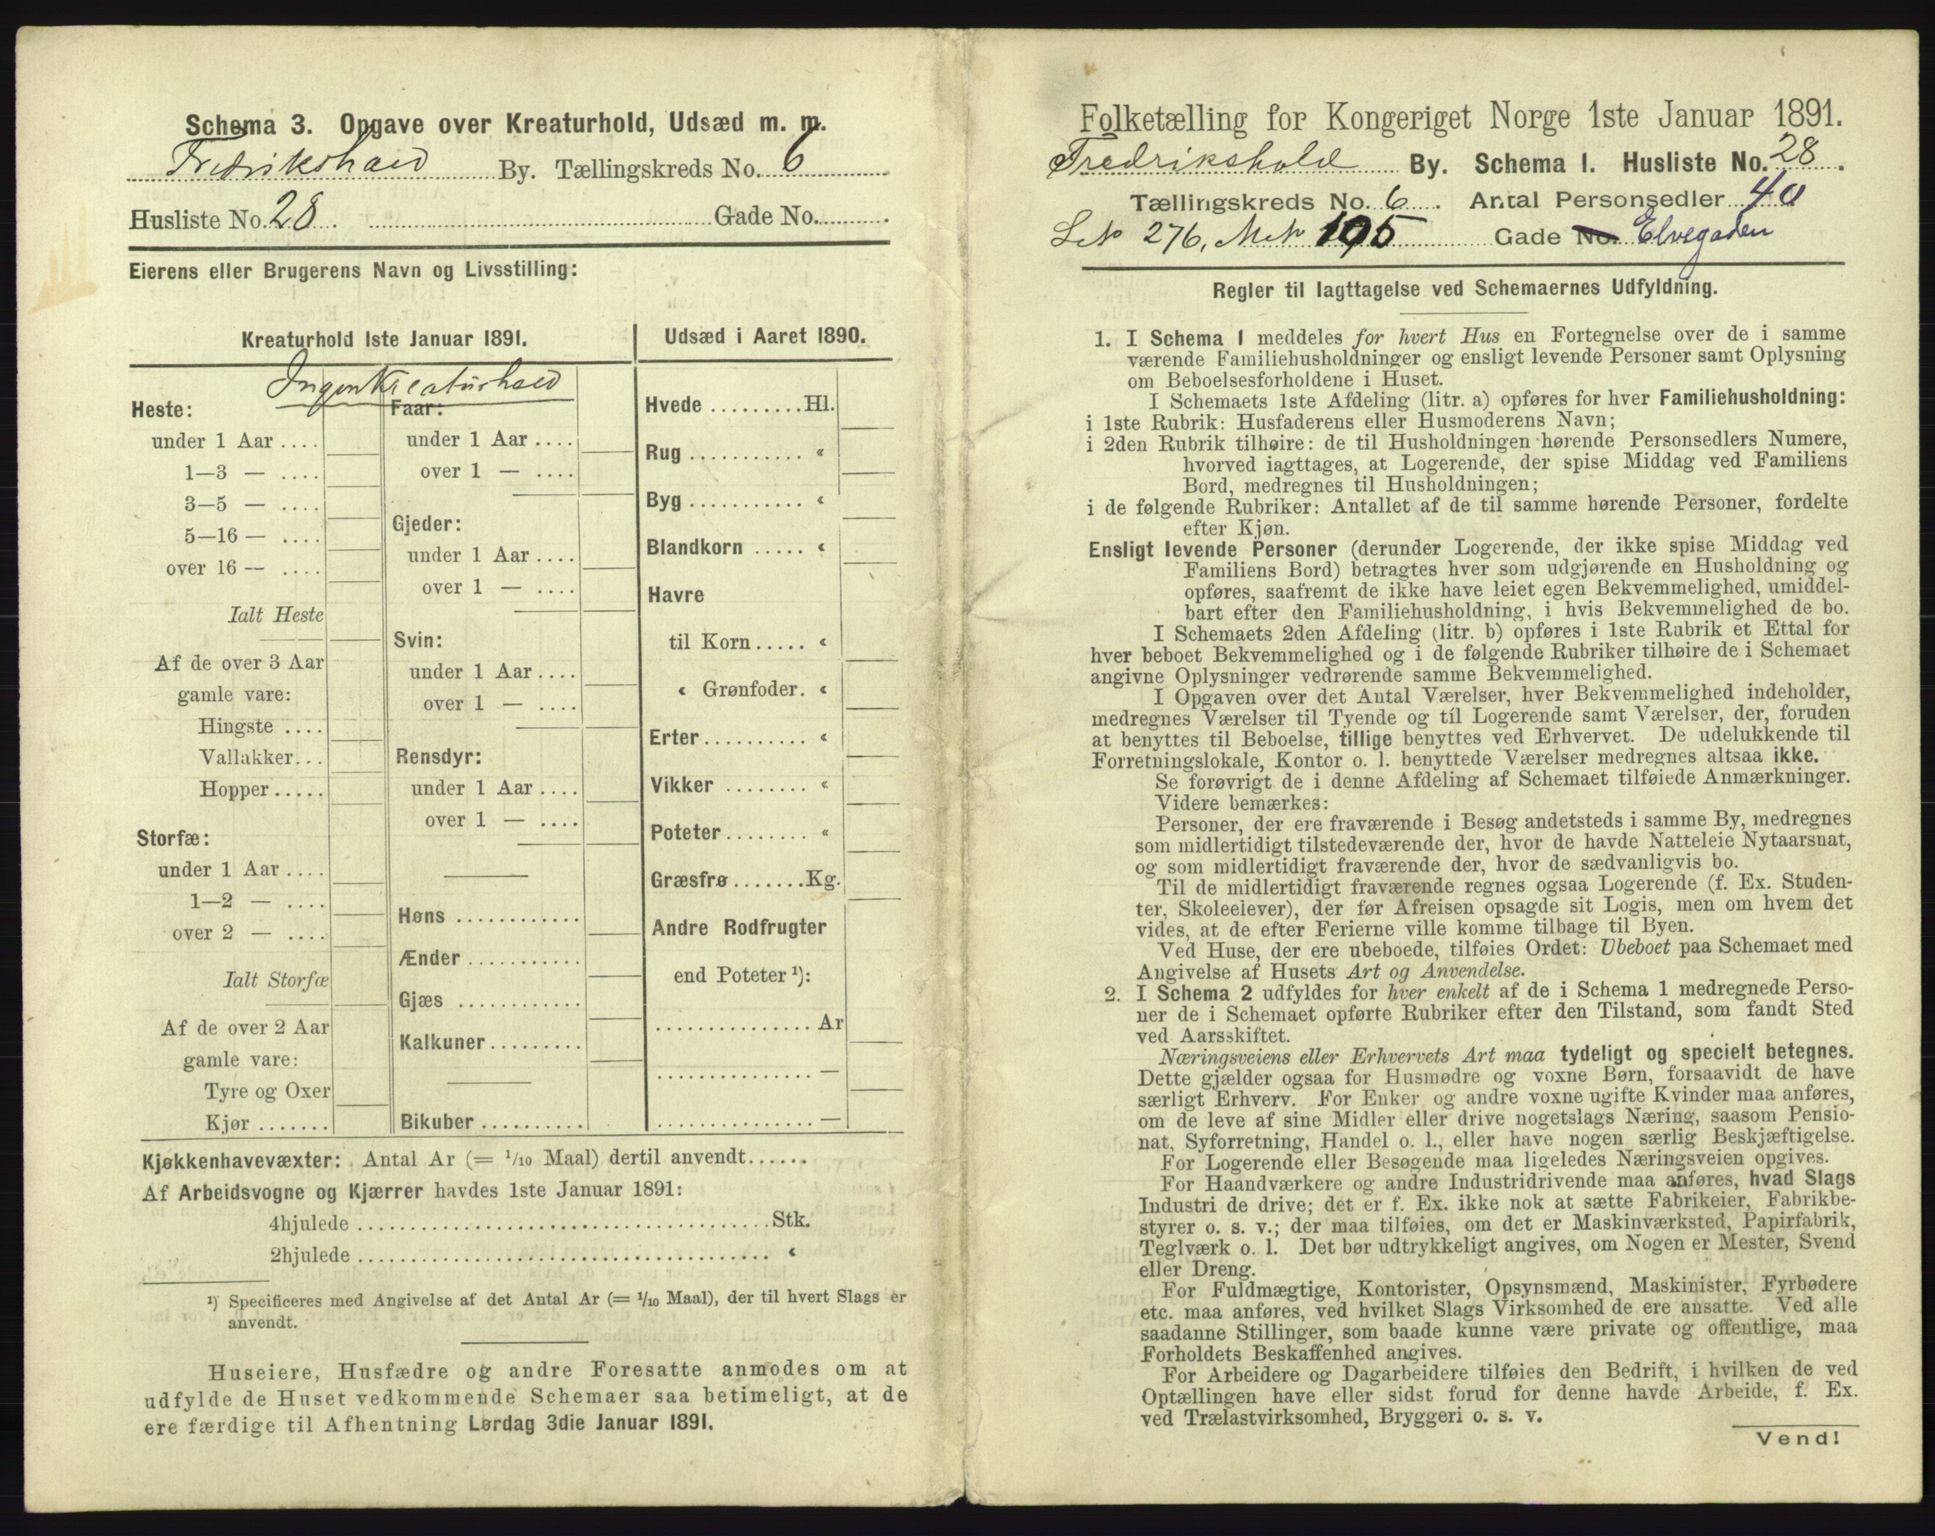 Schema 3. Opgave over Kreaturhold, Udsæd m. m.
Fredrikshald By. Tællingskreds No. 6
Husliste No. 28 Gade No.
Eierens eller Brugerens Navn og Livsstilling:
Kreaturhold 1ste Januar 1891.
Ingen Kreaturhold
Heste:
under 1 Aar ....
1—3 — ....
3—5 — ....
5—16 — ....
over 16 — ....
Ialt Heste
Af de over 3 Aar
gamle vare:
Hingste ....
Vallakker...
Hopper.....
Storfæ:
under 1 Aar ....
1—2 — ....
over 2 — ....
Ialt Storfæ
Af de over 2 Aar
gamle vare:
Tyre og Oxer
Kjør .......
Faar:
under 1 Aar ....
over 1 — ....
Gjeder:
under 1 Aar ....
over 1 — ....
Svin:
under 1 Aar ....
over 1 — ....
Rensdyr:
under 1 Aar ....
over 1 — ....
Høns ............
Ænder ...........
Gjæs ............
Kalkuner.........
Bikuber ..........
Udsæd i Aaret 1890.
Hvede .........Hl.
Rug ........... «
Byg ........... «
Blandkorn ..... «
Havre
til Korn ..... «
« Grønfoder. «
Erter.......... «
Vikker ........ «
Poteter........ «
Græsfrø.......Kg.
Andre Rodfrugter
end Poteter ¹):
............... Ar
............... —
............... —
Kjøkkenhavevæxter: Antal Ar (= 1/10 Maal) dertil anvendt......
Af Arbeidsvogne og Kjærrer havdes 1ste Januar 1891:
4hjulede ........................................Stk.
2hjulede ........................................ «
¹) Specificeres med Angivelse af det Antal Ar (= 1/10 Maal), der til hvert Slags er
anvendt.
Huseiere, Husfædre og andre Foresatte anmodes om at
udfylde de Huset vedkommende Schemaer saa betimeligt, at de
ere færdige til Afhentning Lørdag 3die Januar 1891.
Folketælling for Kongeriget Norge 1ste Januar 1891.
Fredrikshald By. Schema 1. Husliste No. 28
Tællingskreds No. 6. Antal Personsedler 40
Let 276, Mat 195 Gade No. Elvegaden
Regler til Iagttagelse ved Schemaernes Udfyldning.
1. I Schema 1 meddeles for hvert Hus en Fortegnelse over de i samme
værende Familiehusholdninger og ensligt levende Personer samt Oplysning
om Beboelsesforholdene i Huset.
I Schemaets 1ste Afdeling (litr. a) opføres for hver Familiehusholdning:
i 1ste Rubrik: Husfaderens eller Husmoderens Navn;
i 2den Rubrik tilhøire: de til Husholdningen hørende Personsedlers Numere,
hvorved iagttages, at Logerende, der spise Middag ved Familiens
Bord, medregnes til Husholdningen;
i de følgende Rubriker: Antallet af de til samme hørende Personer, fordelte
efter Kjøn.
Ensligt levende Personer (derunder Logerende, der ikke spise Middag ved
Familiens Bord) betragtes hver som udgjørende en Husholdning og
opføres, saafremt de ikke have leiet egen Bekvemmelighed, umiddel-
bart efter den Familiehusholdning, i hvis Bekvemmelighed de bo.
I Schemaets 2den Afdeling (litr. b) opføres i 1ste Rubrik et Ettal for
hver beboet Bekvemmelighed og i de følgende Rubriker tilhøire de i Schemaet
angivne Oplysninger vedrørende samme Bekvemmelighed.
I Opgaven over det Antal Værelser, hver Bekvemmelighed indeholder,
medregnes Værelser til Tyende og til Logerende samt Værelser, der, foruden
at benyttes til Beboelse, tillige benyttes ved Erhvervet. De udelukkende til
Forretningslokale, Kontor o. l. benyttede Værelser medregnes altsaa ikke.
Se forøvrigt de i denne Afdeling af Schemaet tilføiede Anmærkninger.
Videre bemærkes:
Personer, der ere fraværende i Besøg andetsteds i samme By, medregnes
som midlertidigt tilstedeværende der, hvor de havde Natteleie Nytaarsnat,
og som midlertidigt fraværende der, hvor de sædvanligvis bo.
Til de midlertidigt fraværende regnes ogsaa Logerende (f. Ex. Studen-
ter, Skoleelever), der før Afreisen opsagde sit Logis, men om hvem det
vides, at de efter Ferierne ville komme tilbage til Byen.
Ved Huse, der ere ubeboede, tilføies Ordet: Ubeboet paa Schemaet med
Angivelse af Husets Art og Anvendelse.
2. I Schema 2 udfyldes for hver enkelt af de i Schema 1 medregnede Perso-
ner de i Schemaet opførte Rubriker efter den Tilstand, som fandt Sted
ved Aarsskiftet.
Næringsveiens eller Erhvervets Art maa tydeligt og specielt betegnes.
Dette gjælder ogsaa for Husmødre og voxne Børn, forsaavidt de have
særligt Erhverv. For Enker og andre voxne ugifte Kvinder maa anføres,
om de leve af sine Midler eller drive nogetslags Næring, saasom Pensio-
nat, Syforretning, Handel o. l., eller have nogen særlig Beskjæftigelse.
For Logerende eller Besøgende maa ligeledes Næringsveien opgives.
For Haandværkere og andre Industridrivende maa anføres, hvad Slags
Industri de drive; det er f. Ex. ikke nok at sætte Fabrikeier, Fabrikbe-
styrer o. s. v.; der maa tilføies, om det er Maskinværksted, Papirfabrik,
Teglværk o. l. Det bør udtrykkeligt angives, om Nogen er Mester, Svend
eller Dreng.
For Fuldmægtige, Kontorister, Opsynsmænd, Maskinister, Fyrbødere
etc. maa anføres, ved hvilket Slags Virksomhed de ere ansatte. Ved alle
saadanne Stillinger, som baade kunne være private og offentlige, maa
Forholdets Beskaffenhed angives.
For Arbeidere og Dagarbeidere tilføies den Bedrift, i hvilken de ved
Optællingen have eller sidst forud for denne havde Arbeide, f. Ex.
ved Trælastvirksomhed, Bryggeri o. s. v.
Vend!